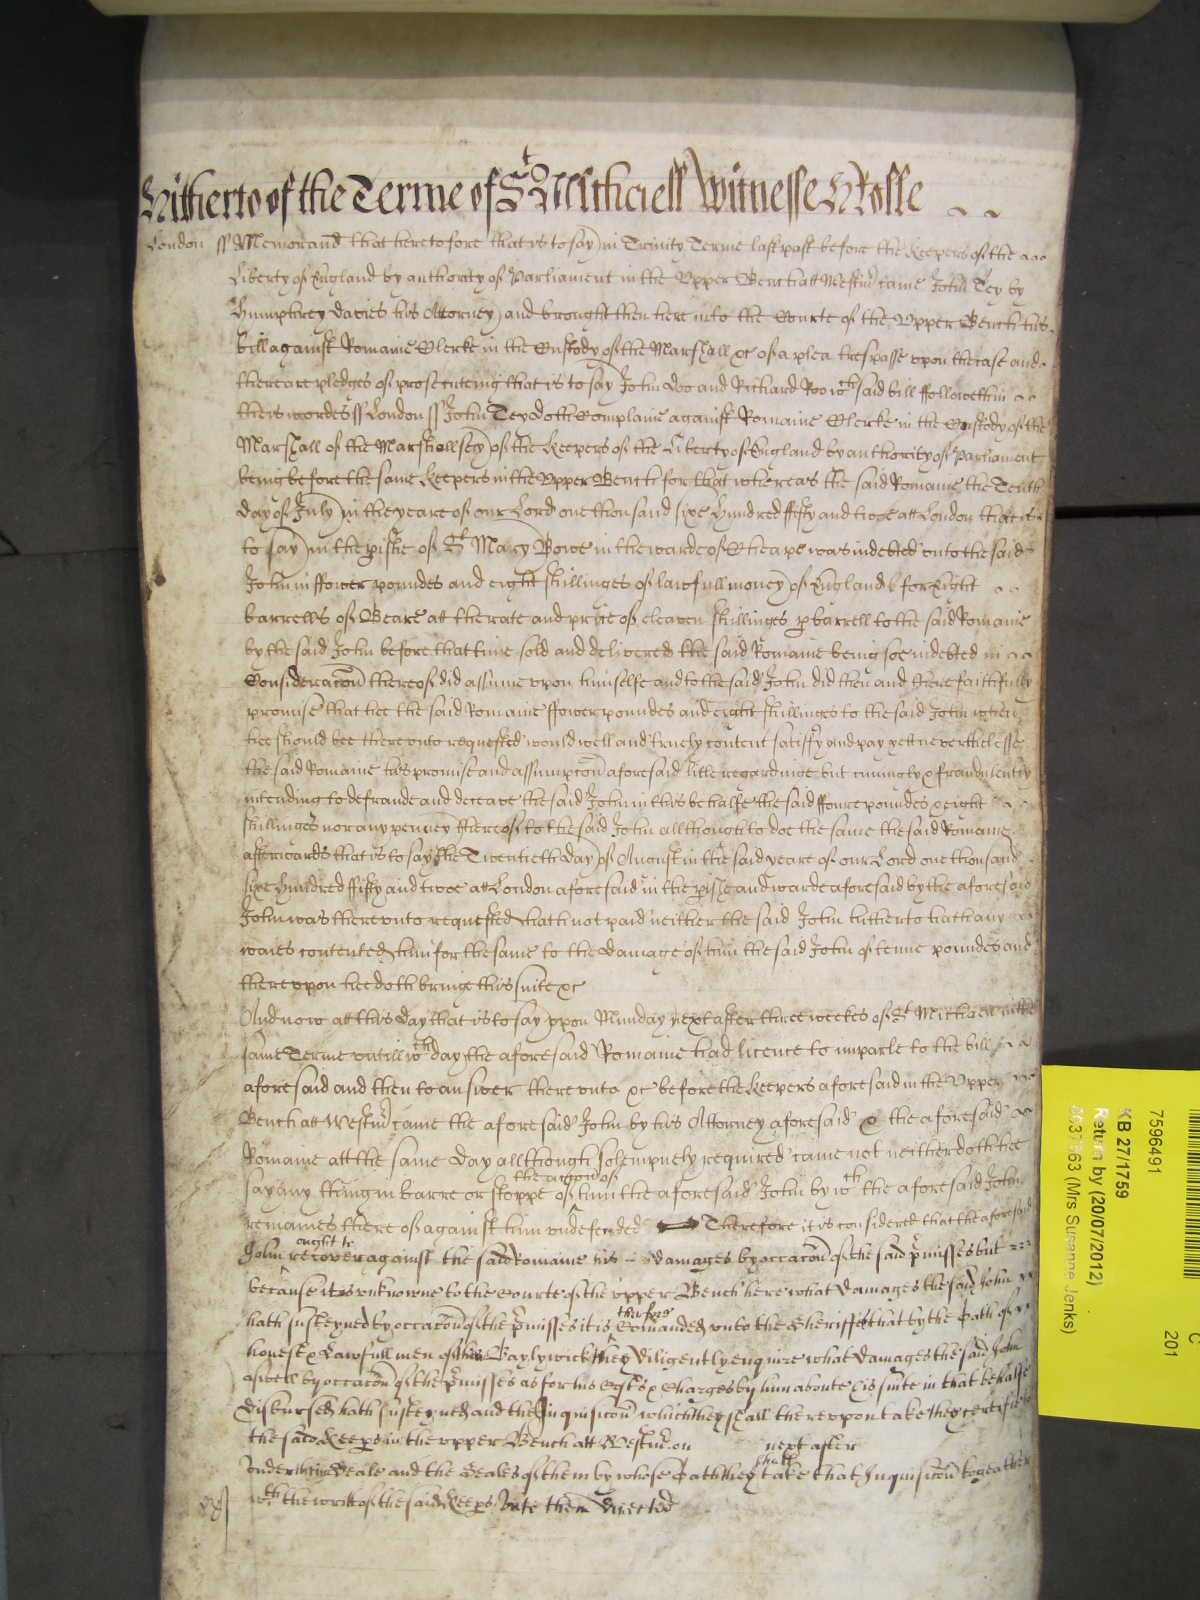 Hitherto of the Terme of St Michaell Witnesse H Rolle
London ss Memorand that heretofore that is to say in Trinity Terme last past before the Keepers of the
Liberty of England by authority of Parliament in the Upper Bench att Westmr came John Tey by
Humphrey Davies his Attorney and brought then here into the Courte of the Upper Bench his
bill against Romaine Clerke in the Custody of the Marshall &c of a plea trespasse upon the case and
there are pledges of prosecuteing that is to say John Doo and Richard Roo wch said bill followeth in
theis wordes ss London ss John Tey doth Complaine against Romaine Clerke in the Custody of the
Marshall of the Marshallsey of the Keepers of the Liberty of England by authority of Parliament
being before the same Keepers in the Upper Bench for that whereas the said Romaine the Tenth
day of July in the yeare of our Lord one thousand sixe Hundred fifty and twoe att London that is
to say in the pishe of St Mary Bowe in the warde of Cheape was indebted unto the said
John in ffower poundes and eight shillinges of lawfull money of England for Eight
barrells of Beare att the rate and price of eleaven shillinges p barrell to the said Romaine
by the said John before that time sold and delivered the said Romaine being soe indebted in
Consideracon thereof did assume upon himselfe and to the said John did then and there faithfully
promise that hee the said Romaine ffower poundes and eight shillinges to the said John when
hee should bee thereunto requested would well and truely content satisfy and pay yett neverthelesse
the said Romaine his promise and assumpcon aforesaid litle regardinge but cuningly & fraudulently
intending to defraude and deceave the said John in this behalfe the said ffoure poundes & eight
shillinges nor any penney thereof to the said John allthough to doe the same the said Romaine
afterwards that is to say the Twentieth day of August in the said yeare of our Lord one thousand
sixe Hundred fifty and twoe att London aforesaid in the pishe and warde aforesaid by the aforesaid
John was thereunto requested hath not paid neither the said John hitherto hath any
waies contented him for the same to the damage of him the said John of tenne poundes and
thereupon hee doth bringe this suite &c
And now att this day that is to say upon Munday next after three weekes of St Michaell in this
same Terme untill wch day the aforesaid Romaine had licence to imparle to the bill
aforesaid and then to answer thereunto &c before the Keepers aforesaid in the Upper
Bench att Westmr came the aforesaid John by his Attorney aforesaid & the aforesaid
Romaine att the same day allthough solempnely required came not neither doth hee
the accon of
say any thing in barre or stoppe of him the aforesaid John by wch the aforesaid John
remaines there of against him undefended Therefore it is considered that the aforesaid
ought to
John recover against the said Romaine his damages by occacon of the said pmisses but
because it is unknowne to the Courte of the upper Bench here what damages the said John
therfore
hath susteyned by occacon of the pmisses it is Comanded unto the Sheriffes that by the Oath of
honest & Lawfull men of his Baylywick they diligently enquire what damages the said John
aswell by occacon of the pmisses as for his Costs & Charges by him aboute his suite in that behalfe
disbursed hath susteyned and the Inquisicon which they shall thereupon take they certifie to
the said Keeps in the upper Bench att Westmr on next after
shall
under their Seale and the Seales of them by whose Oath they take that Inquisicon togeather
wth the writt of the said Keeps unto them directed
7596491
KB 27/1759
Return by (20/07/2012)
(Mrs Susanne Jenks)
C
201